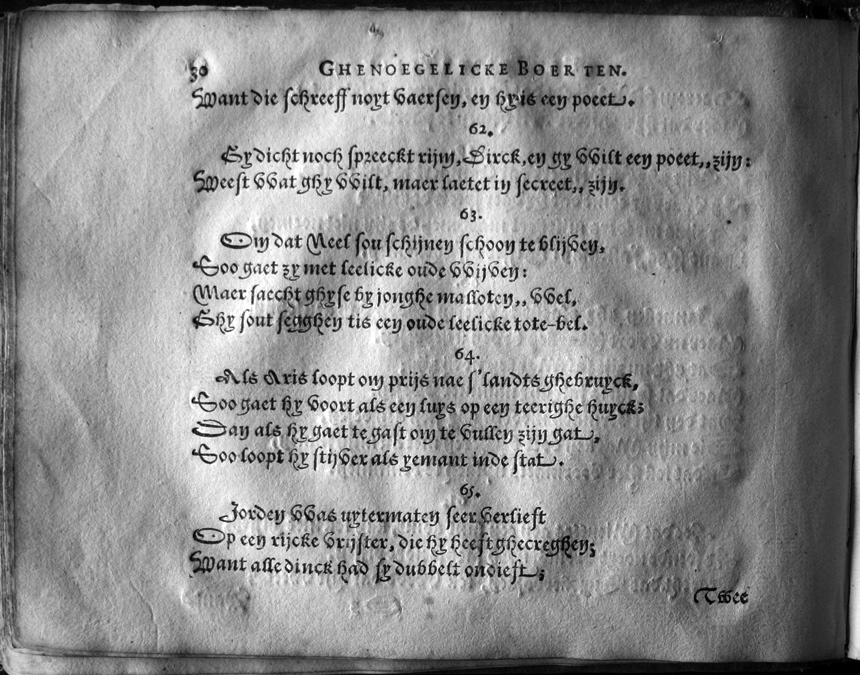 30 GHENOEGELICKE BOERTEN.
Want die schreeff noyt vaersen, en hy is een poeet.
62.
Gy dicht noch spreeckt rijm, Dirck, en gy wilt een poeet,, zijn:
Weest wat ghy wilt, maer laetet in secreet,, zijn.
63.
Om dat Neel sou schijnen schoon te blijven,
Soo gaet zy met leelicke oude wijven:
Maer saecht ghyse by jonghe malloten,, wel,
Ghy sout segghen tis een oude leelicke tote-bel.
64.
Als Aris loopt om prijs nae s'landts ghebruyck,
Soo gaet hy voort als een luys op een teerighe huyck:
Dan als hy gaet te gast om te vullen zijn gat,
Soo loopt hy stijver als yemant inde stat.
65.
Jorden was uytermaten seer verlieft
Op een rijcke vrijster, die hy heeft ghecreghen;
Want alle dinck had sy dubbelt ondieft;
Twee